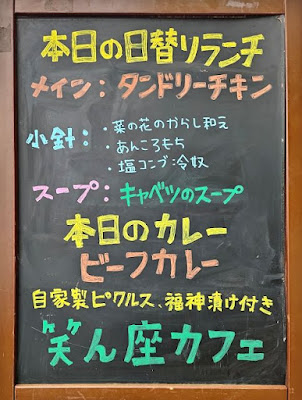 本日の日替りランチ
メイン：タンドリーチキン
小針：・菜の花のからし和え
・あんころもち
・塩コンブ冷奴
スープ：キャベツのスープ
本日のカレー
ビーフカレー
自家製ピクルス、福神漬け付き
笑ん座カフェ